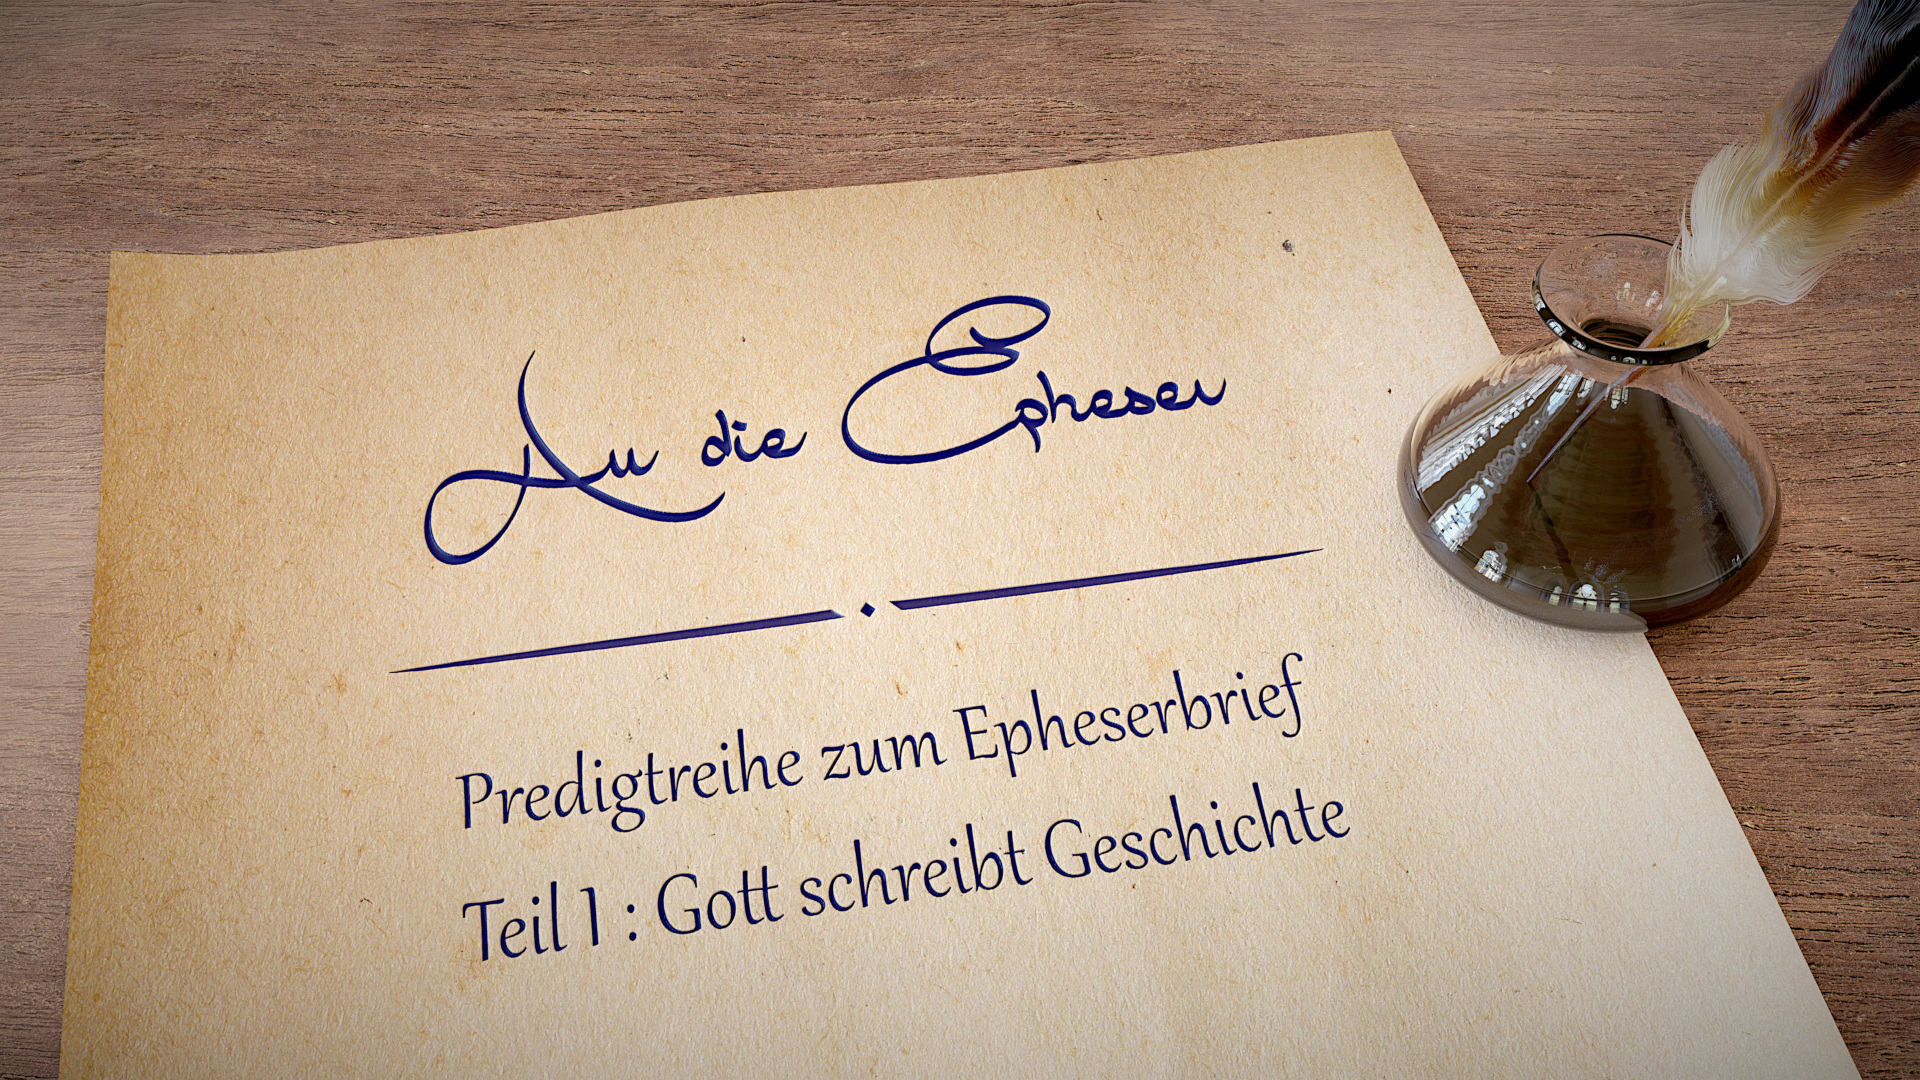 An die Epheser
Predigtreihe zum Epheserbrief
Teil 1 : Gott schreibt Geschichte